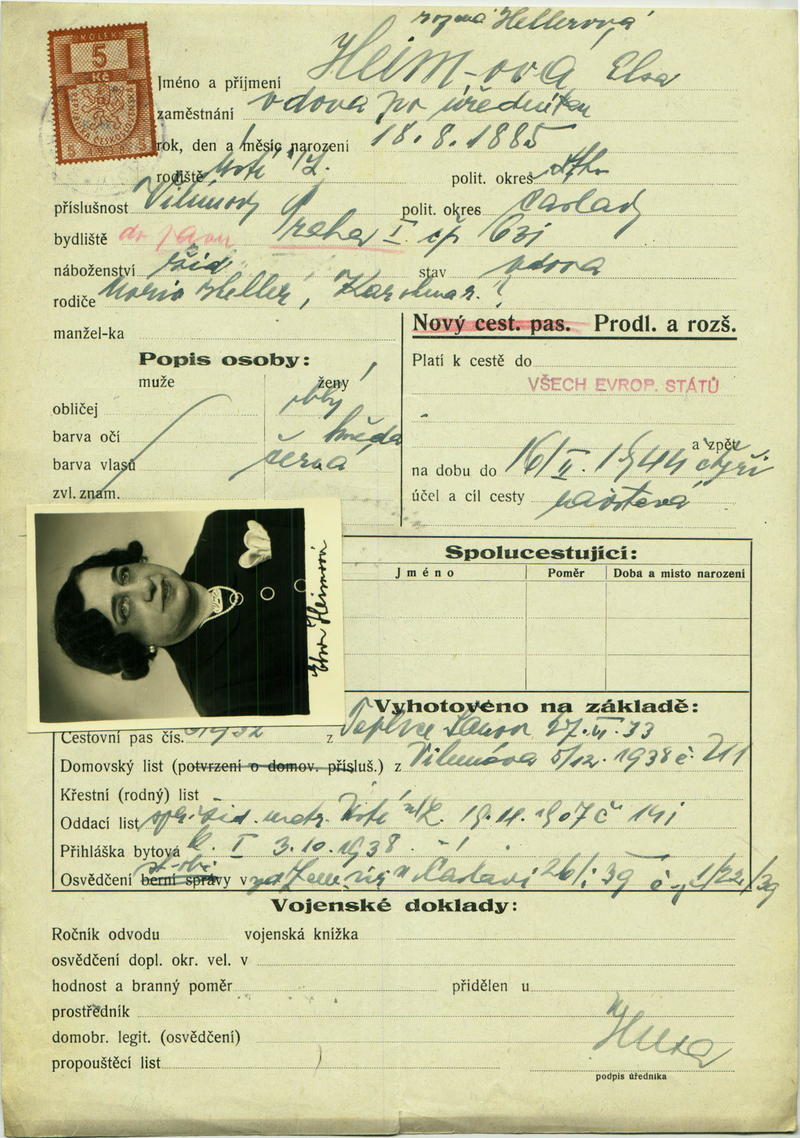 KOLEK
5
Kč
rozená Hellerová
Jméno a příjmení Heim-ová Elsa
zaměstnání vdova po úředníku
rok, den a měsíc narození 18. 8. 1885
rodiště polit. okres
příslušnost Vilémov polit. okres Čáslav
bydliště Praha I čp 631
náboženství žid stav vdova
rodiče Heller,
manžel-ka
Nový cest. pas. Prodl. a rozš.
Popis osoby:
muže ženy
obličej
barva očí hnědá
barva vlasů černá
zvl. znam.
Platí k cestě do
VŠECH EVROP. STÁTŮ
a zpět
na dobu do 16/II. 1944 čtyři
účel a cíl cesty návštěva
Elsa Heimová
Spolucestující:
Jméno Poměr Doba a místo narození
Vyhotoveno na základě:
Cestovní pas čís. z Teplice Šanov 27. VI. 33
Domovský list (potvrzení o domov. přísluš.) z Vilémova 5/12. 1938 č. 211
Křestní (rodný) list
Oddací list žid. matr. 19. 11. 1907 č 141
Přihláška bytová I 3. 10. 1938
Osvědčení berní správy v Čáslavi 26/I 39 1/22/39
Vojenské doklady:
Ročník odvodu vojenská knížka
osvědčení dopl. okr. vel. v
hodnost a branný poměr přidělen u
prostředník
domobr. legit. (osvědčení)
propouštěcí list
podpis úředníka